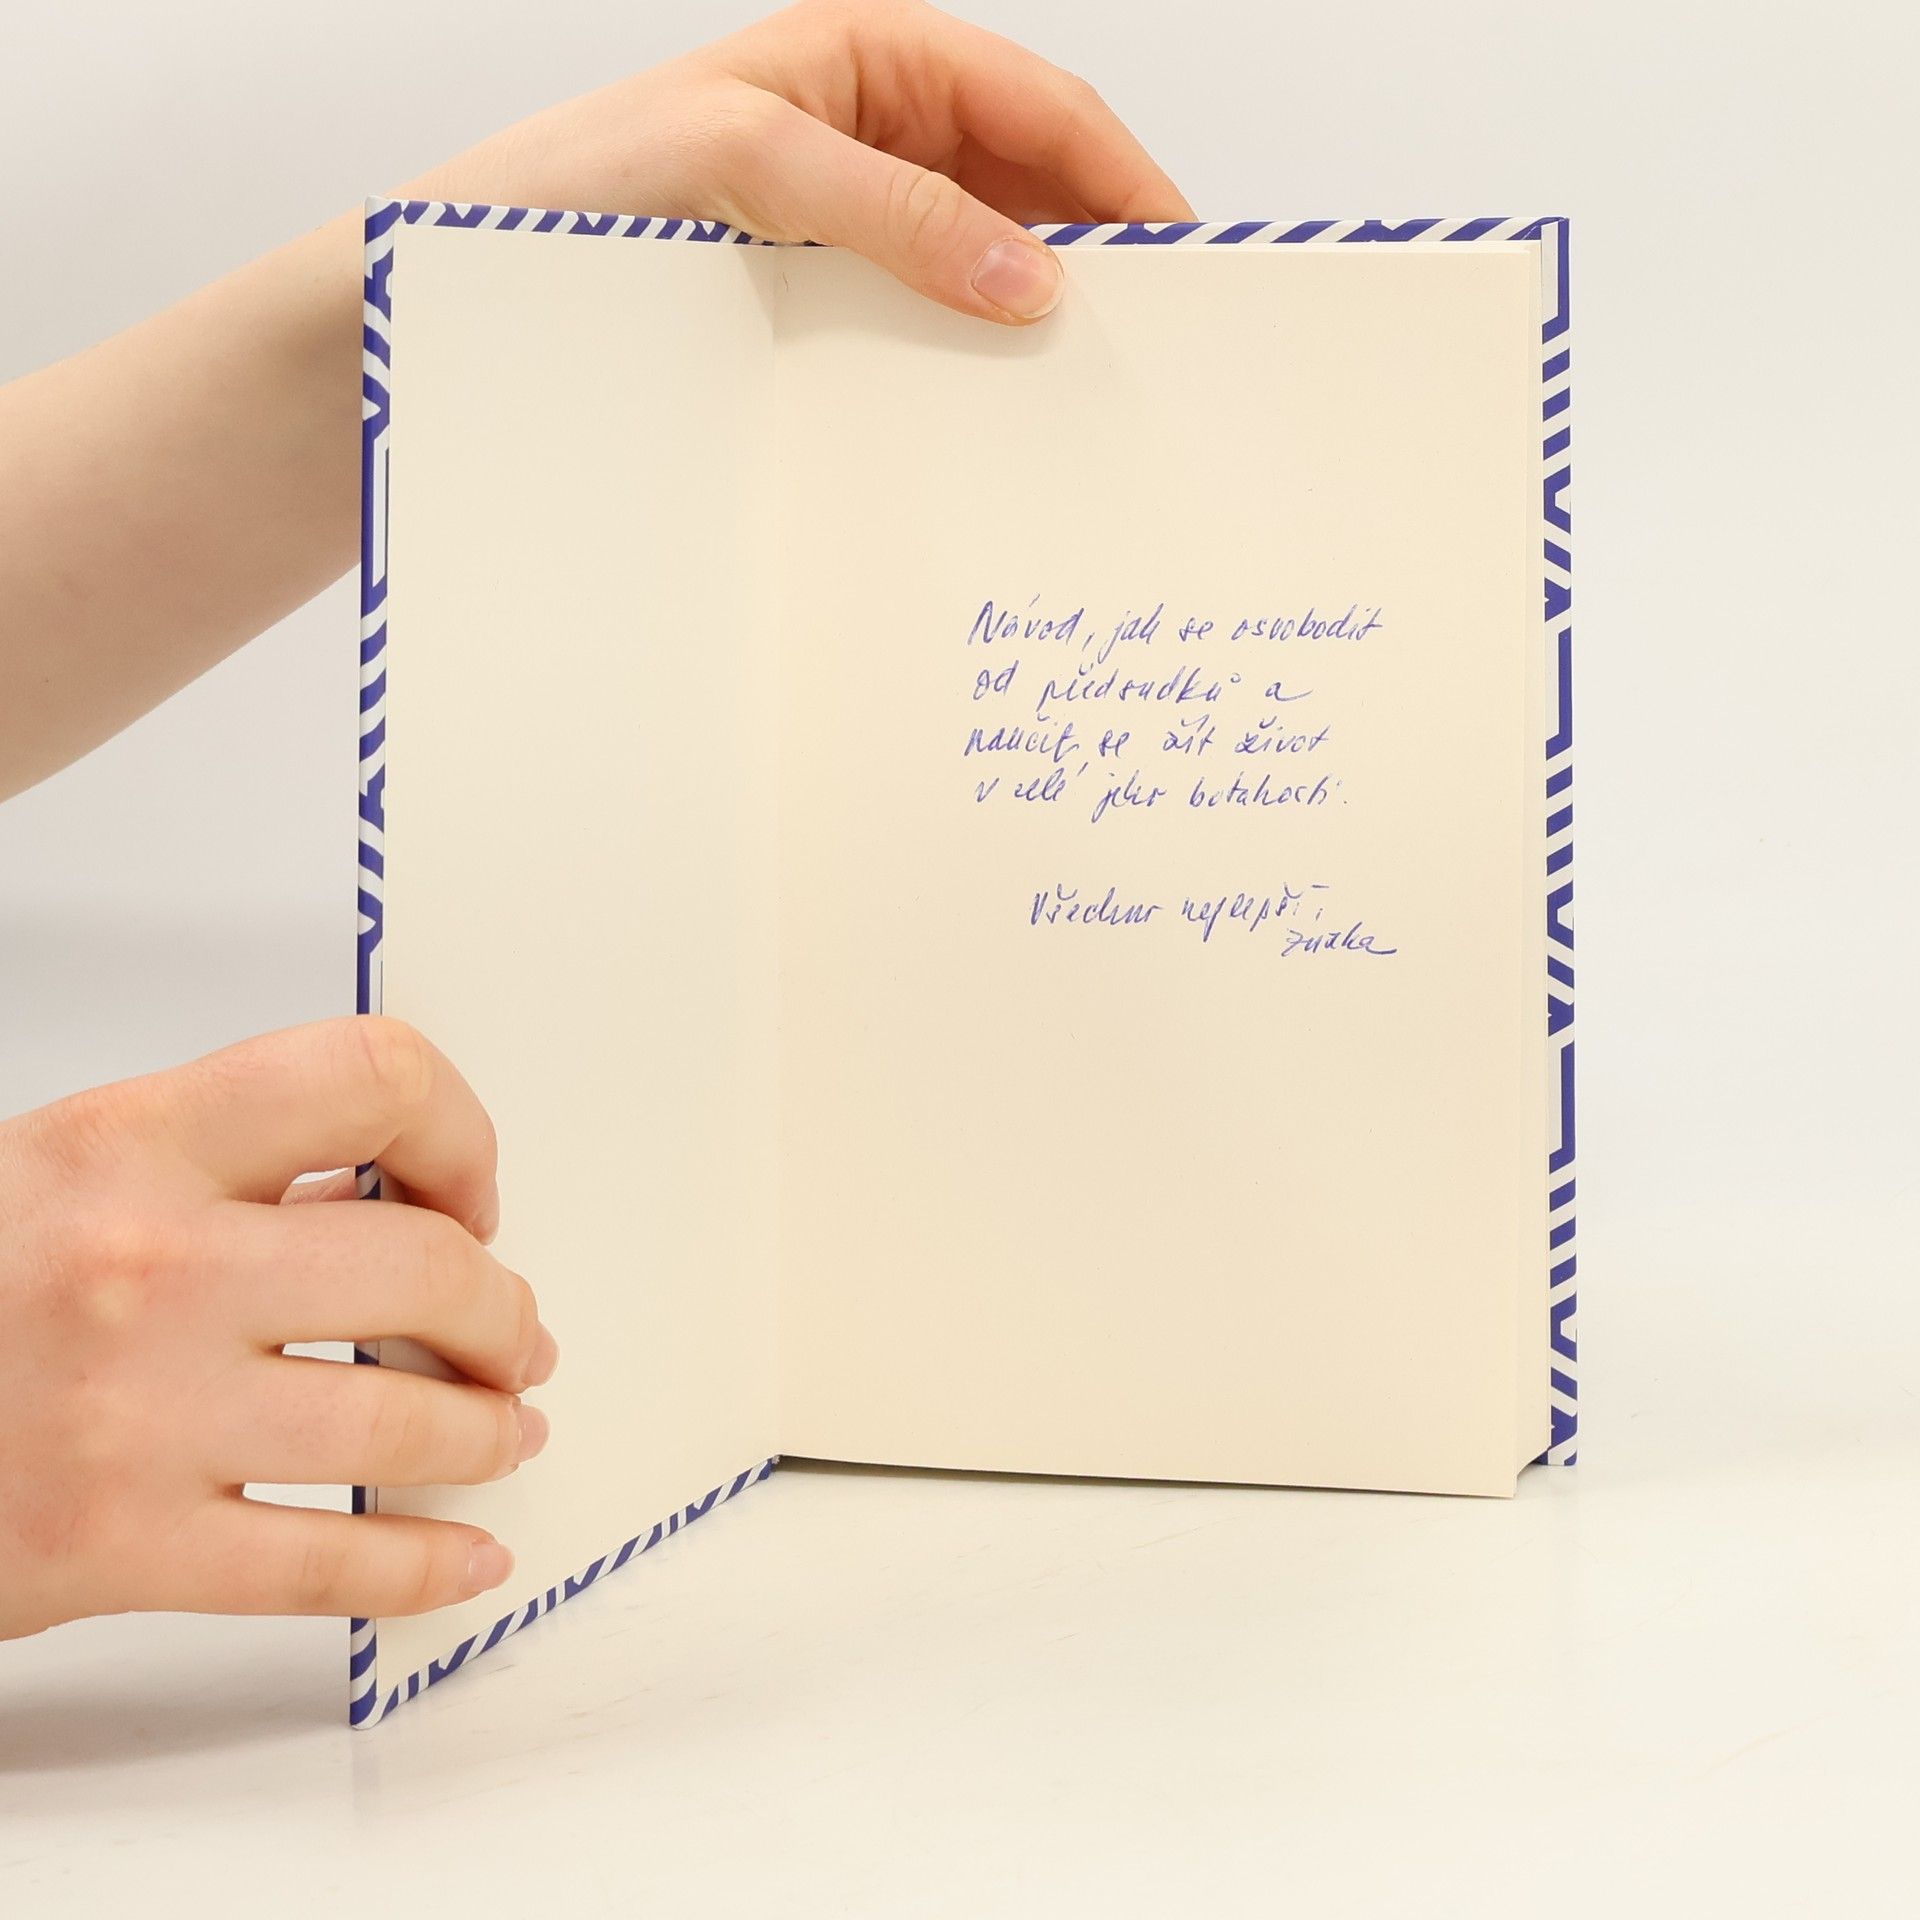 Návod, jak se osvobodit
od předsudků a
naučit se žít život
v celé jeho bohatosti.
Všechno nejlepší,
Zuzka